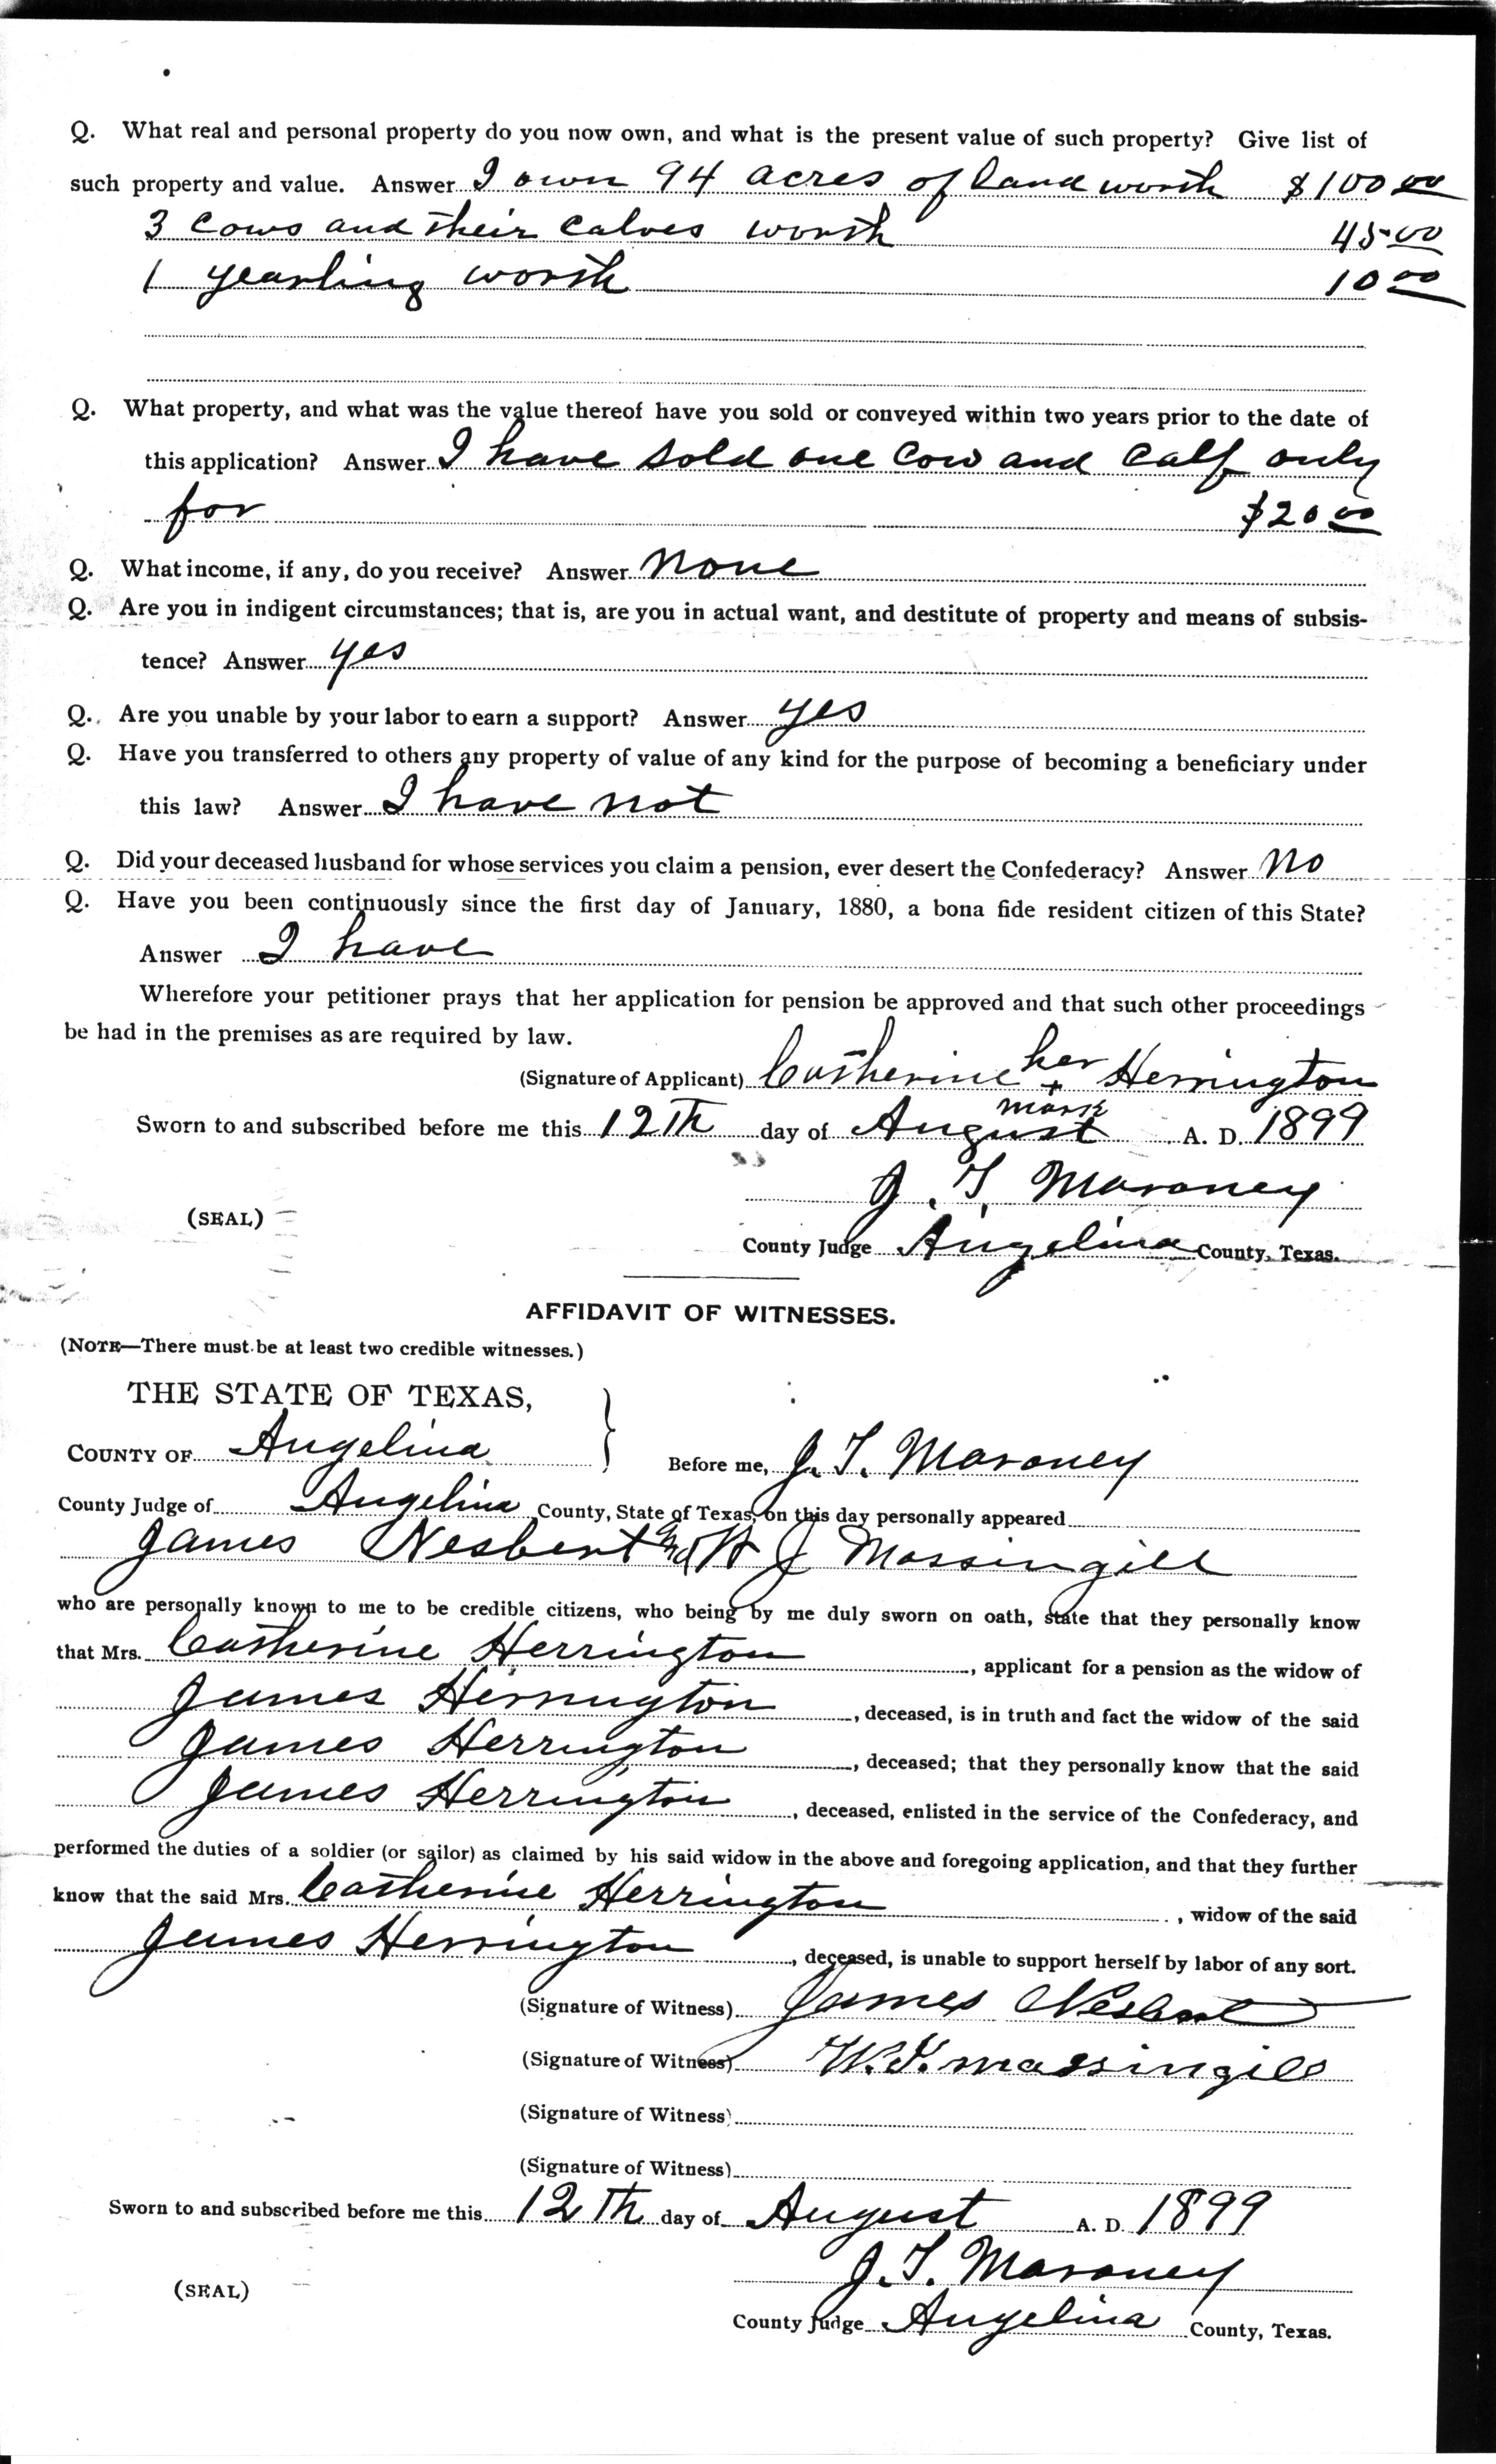 Q. What real and personal property do you now own, and what is the present value of such property? Give list of
such property and value. Answer I own 94 acres of land worth $100 00
3 Cows and their Calves worth 45 00
1 yearling worth 10 00
Q. What property, and what was the value thereof have you sold or conveyed within two years prior to the date of
this application? Answer I have sold one Cow and Calf only
for $20 00
Q. What income, if any, do you receive? Answer None
Q. Are you in indigent circumstances; that is, are you in actual want, and destitute of property and means of subsis-
tence? Answer yes
Q. Are you unable by your labor to earn a support? Answer yes
Q. Have you transferred to others any property of value of any kind for the purpose of becoming a beneficiary under
this law? Answer I have not
Q. Did your deceased husband for whose services you claim a pension, ever desert the Confederacy? Answer No
Q. Have you been continuously since the first day of January, 1880, a bona fide resident citizen of this State?
Answer I have
Wherefore your petitioner prays that her application for pension be approved and that such other proceedings
be had in the premises as are required by law.
(Signature of Applicant) Catherine her + mark Herrington
Sworn to and subscribed before me this 12th day of August A. D. 1899
J. T. Maroney
(SEAL)
County Judge Angelina County, Texas.
AFFIDAVIT OF WITNESSES.
(NOTE—There must be at least two credible witnesses.)
THE STATE OF TEXAS,
COUNTY OF Angelina } Before me, J. T. Maroney
County Judge of Angelina County, State of Texas, on this day personally appeared
James Nesbent and J Massingill
who are personally known to me to be credible citizens, who being by me duly sworn on oath, state that they personally know
that Mrs. Catherine Herrington, applicant for a pension as the widow of
James Herrington, deceased, is in truth and fact the widow of the said
James Herrington, deceased; that they personally know that the said
James Herrington, deceased, enlisted in the service of the Confederacy, and
performed the duties of a soldier (or sailor) as claimed by his said widow in the above and foregoing application, and that they further
know that the said Mrs. Catherine Herrington, widow of the said
James Herrington, deceased, is unable to support herself by labor of any sort.
(Signature of Witness) James Nesbent
(Signature of Witness) Massingill
(Signature of Witness)
(Signature of Witness)
Sworn to and subscribed before me this 12th day of August A. D. 1899
J. T. Maroney
(SEAL)
County Judge Angelina County, Texas.